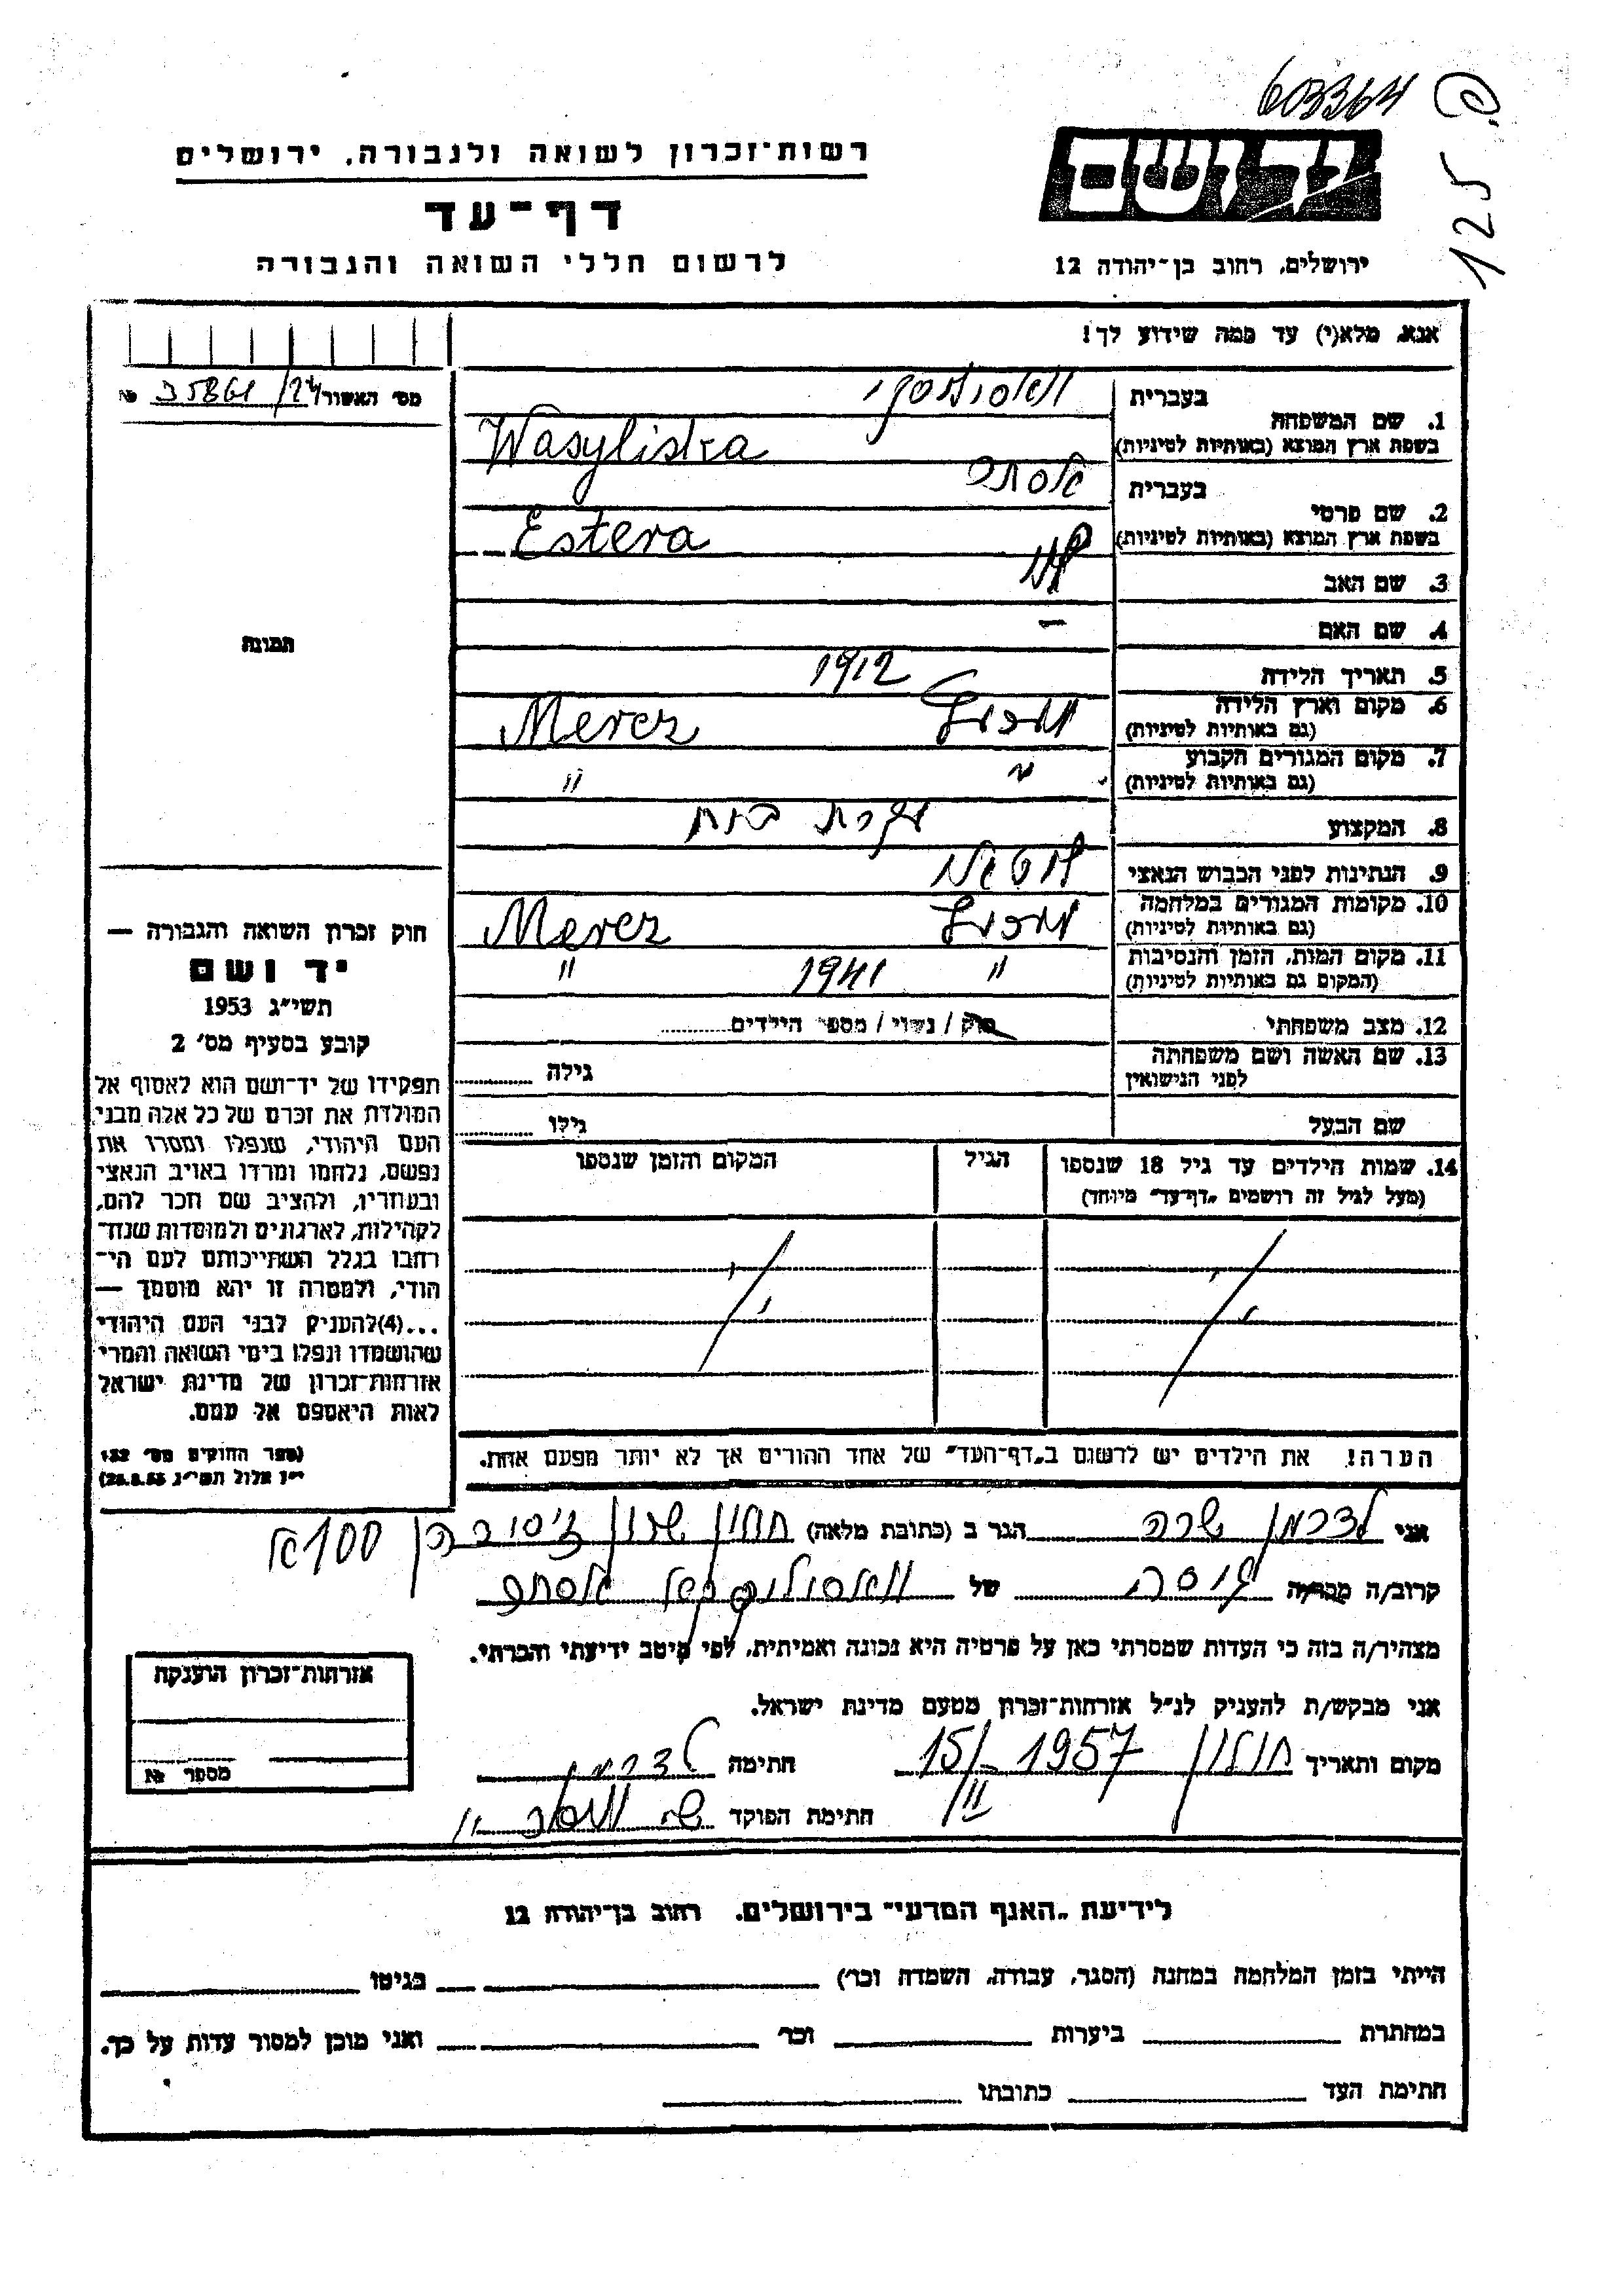 603364 פ.
125
רשות־זכרון לשואה ולגבורה, ירושלים
יד ושם
דף־עד
לרשום חללי השואה והגבורה
ירושלים, רחוב בן־יהודה 12
אנא, מלא(י) עד כמה שידוע לך!
מס' האשור 35861/24 №
1. שם המשפחה
בעברית
בשפת ארץ המוצא (באותיות לטיניות) Wasyliska
2. שם פרטי
בעברית אסתר
בשפת ארץ המוצא (באותיות לטיניות) Estera
3. שם האב
4. שם האם —
5. תאריך הלידה 1912
6. מקום וארץ הלידה
(גם באותיות לטיניות) Merez
7. מקום המגורים הקבוע
(גם באותיות לטיניות) " "
8. המקצוע עקרת בית
9. הנתינות לפני הכבוש הנאצי ליטאי
10. מקומות המגורים במלחמה
(גם באותיות לטיניות) Merez
11. מקום המות, הזמן והנסיבות
(המקום גם באותיות לטיניות) " 1941 "
12. מצב משפחתי רווק / נשוי / מספר הילדים
13. שם האשה ושם משפחתה
לפני הנישואין גילה
שם הבעל גילו
14. שמות הילדים עד גיל 18 שנספו הגיל המקום והזמן שנספו
(מעל לגיל זה רושמים „דף־עד" מיוחד)
הערה! את הילדים יש לרשום ב„דף־העד" של אחד ההורים אך לא יותר מפעם אחת.
תמונה
חוק זכרון השואה והגבורה —
יד ושם
תשי"ג 1953
קובע בסעיף מס' 2
תפקידו של יד־ושם הוא לאסוף אל
המולדת את זכרם של כל אלה מבני
העם היהודי, שנפלו ומסרו את
נפשם, נלחמו ומרדו באויב הנאצי
ובעוזריו, ולהציב שם וזכר להם,
לקהילות, לארגונים ולמוסדות שנח־
רבו בגלל השתייכותם לעם הי־
הודי, ולמטרה זו יהא מוסמך —
...(4) להעניק לבני העם היהודי
שהושמדו ונפלו בימי השואה והמרי
אזרחות־זכרון של מדינת ישראל
לאות היאספם אל עמם.
(ספר החוקים מס' 132
י"ז אלול תשי"ג 28.8.53)
אני לדרמן שרה הגר ב (כתובת מלאה) חולון 100
קרוב/ה מכר/ה גיסה של אסתר
מצהיר/ה בזה כי העדות שמסרתי כאן על פרטיה היא נכונה ואמיתית, לפי מיטב ידיעתי והכרתי.
אני מבקש/ת להעניק לנ"ל אזרחות־זכרון מטעם מדינת ישראל.
מקום ותאריך חולון 15/II 1957 חתימה לדרמן
חתימת הפוקד
אזרחות־זכרון הוענקה
מספר №
לידיעת „האגף המדעי" בירושלים, רחוב בן־יהודה 12
הייתי בזמן המלחמה במחנה (הסגר, עבודה, השמדה וכו') בגיטו
במחתרת ביערות וכו' ואני מוכן למסור עדות על כך.
חתימת העד כתובתו